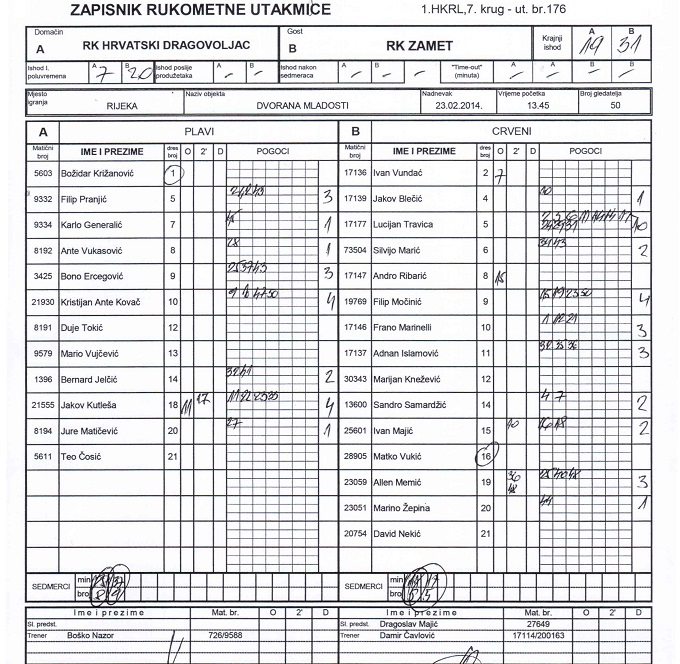 ZAPISNIK RUKOMETNE UTAKMICE
1.HKRL,7. krug - ut. br.176
Domaćin
A RK HRVATSKI DRAGOVOLJAC
Gost
B RK ZAMET
Krajnji ishod A 19 B 31
Ishod I. poluvremena A 7 B 20
Ishod poslije produžetaka A - B -
Ishod nakon sedmeraca A - B -
"Time-out" (minuta) A - A - B - B -
Mjesto igranja RIJEKA
Naziv objekta DVORANA MLADOSTI
Nadnevak 23.02.2014.
Vrijeme početka 13.45
Broj gledatelja 50
A PLAVI
Matični broj IME I PREZIME dres broj O 2' D POGOCI
5603 Božidar Križanović 1
9332 Filip Pranjić 5 3
9334 Karlo Generalić 7 1
8192 Ante Vukasović 8 28 1
3425 Bono Ercegović 9 3
21930 Kristijan Ante Kovač 10 4
8191 Duje Tokić 12
9579 Mario Vujčević 13
1396 Bernard Jelčić 14 2
21555 Jakov Kutleša 18 11 17 4
8194 Jure Matičević 20 27 1
5611 Teo Čosić 21
SEDMERCI min broj
B CRVENI
Matični broj IME I PREZIME dres broj O 2' D POGOCI
17136 Ivan Vundać 2 7
17139 Jakov Blečić 4 1
17177 Lucijan Travica 5 10
73504 Silvijo Marić 6 2
17147 Andro Ribarić 8 15
19769 Filip Močinić 9 4
17146 Frano Marinelli 10 3
17137 Adnan Islamović 11 3
30343 Marijan Knežević 12
13600 Sandro Samardžić 14 4 7 2
25601 Ivan Majić 15 10 16 18 2
28905 Matko Vukić 16
23059 Allen Memić 19 3
23051 Marino Žepina 20 44 1
20754 David Nekić 21
SEDMERCI min broj
Ime i prezime Mat. br. O 2' D
Sl. predst.
Trener Boško Nazor 726/9588
Ime i prezime Mat. br. O 2' D
Sl. predst. Dragoslav Majić 27649
Trener Damir Čavlović 17114/200163